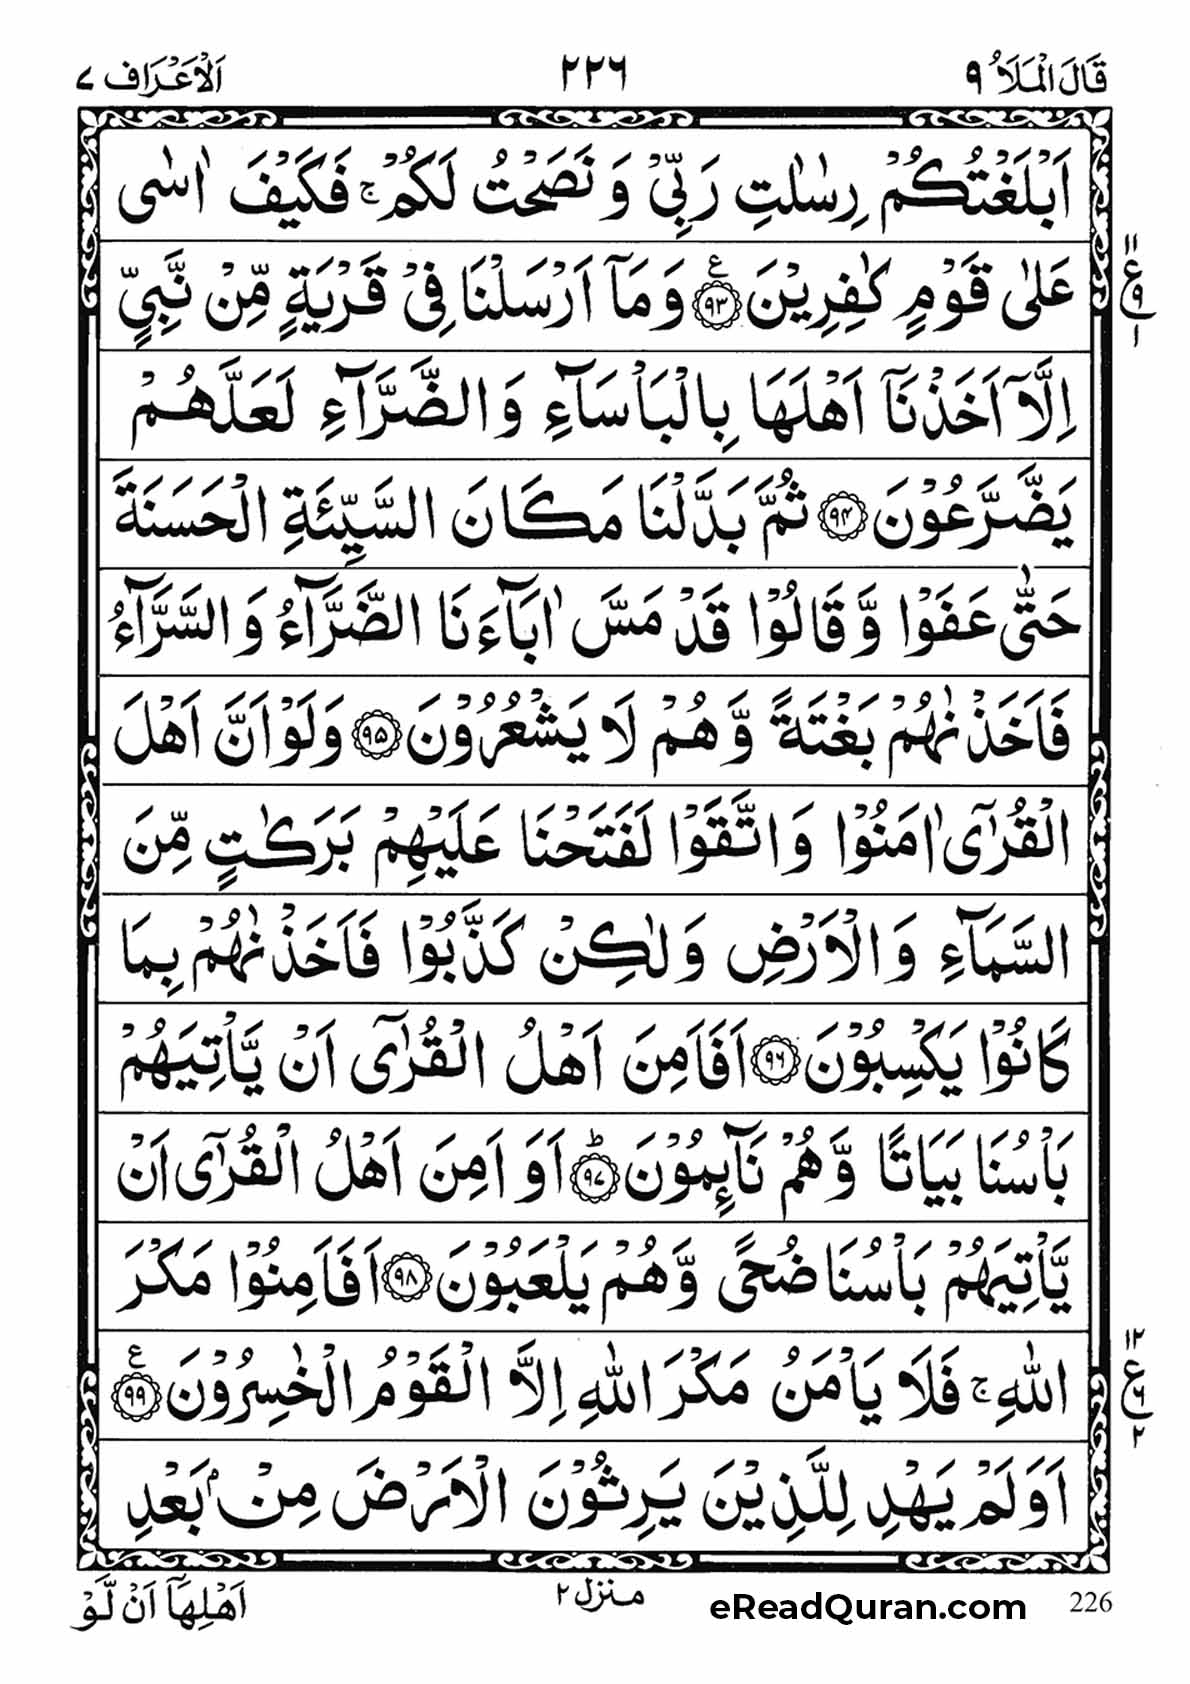 قَالَ الْمَلَاُ ٩ ٢٢٦ اَلْاَعْرَاف ٧
اَبْلَغْتُكُمْ رِسٰلٰتِ رَبِّیْ وَ نَصَحْتُ لَكُمْ ۚ فَكَیْفَ اٰسٰی
عَلٰی قَوْمٍ كٰفِرِیْنَ ﴿۹۳﴾ ع وَ مَاۤ اَرْسَلْنَا فِیْ قَرْیَةٍ مِّنْ نَّبِیٍّ
١١ ع ٩ ١
اِلَّاۤ اَخَذْنَاۤ اَهْلَهَا بِالْبَاْسَآءِ وَ الضَّرَّآءِ لَعَلَّهُمْ
یَضَّرَّعُوْنَ ﴿۹۴﴾ ثُمَّ بَدَّلْنَا مَكَانَ السَّیِّئَةِ الْحَسَنَةَ
حَتّٰی عَفَوْا وَّ قَالُوْا قَدْ مَسَّ اٰبَآءَنَا الضَّرَّآءُ وَ السَّرَّآءُ
فَاَخَذْنٰهُمْ بَغْتَةً وَّ هُمْ لَا یَشْعُرُوْنَ ﴿۹۵﴾ وَ لَوْ اَنَّ اَهْلَ
الْقُرٰۤی اٰمَنُوْا وَ اتَّقَوْا لَفَتَحْنَا عَلَیْهِمْ بَرَكٰتٍ مِّنَ
السَّمَآءِ وَ الْاَرْضِ وَ لٰكِنْ كَذَّبُوْا فَاَخَذْنٰهُمْ بِمَا
كَانُوْا یَكْسِبُوْنَ ﴿۹۶﴾ اَفَاَمِنَ اَهْلُ الْقُرٰۤی اَنْ یَّاْتِیَهُمْ
بَاْسُنَا بَیَاتًا وَّ هُمْ نَآىِٕمُوْنَ ﴿۹۷﴾ ؕ اَوَ اَمِنَ اَهْلُ الْقُرٰۤی اَنْ
یَّاْتِیَهُمْ بَاْسُنَا ضُحًی وَّ هُمْ یَلْعَبُوْنَ ﴿۹۸﴾ اَفَاَمِنُوْا مَكْرَ
اللّٰهِ ۚ فَلَا یَاْمَنُ مَكْرَ اللّٰهِ اِلَّا الْقَوْمُ الْخٰسِرُوْنَ ﴿۹۹﴾ ع
١٢ ع ٦ ٢
اَوَ لَمْ یَهْدِ لِلَّذِیْنَ یَرِثُوْنَ الْاَرْضَ مِنْۢ بَعْدِ
اَهْلِهَاۤ اَنْ لَّوْ
منزل ٢
eReadQuran.com
226